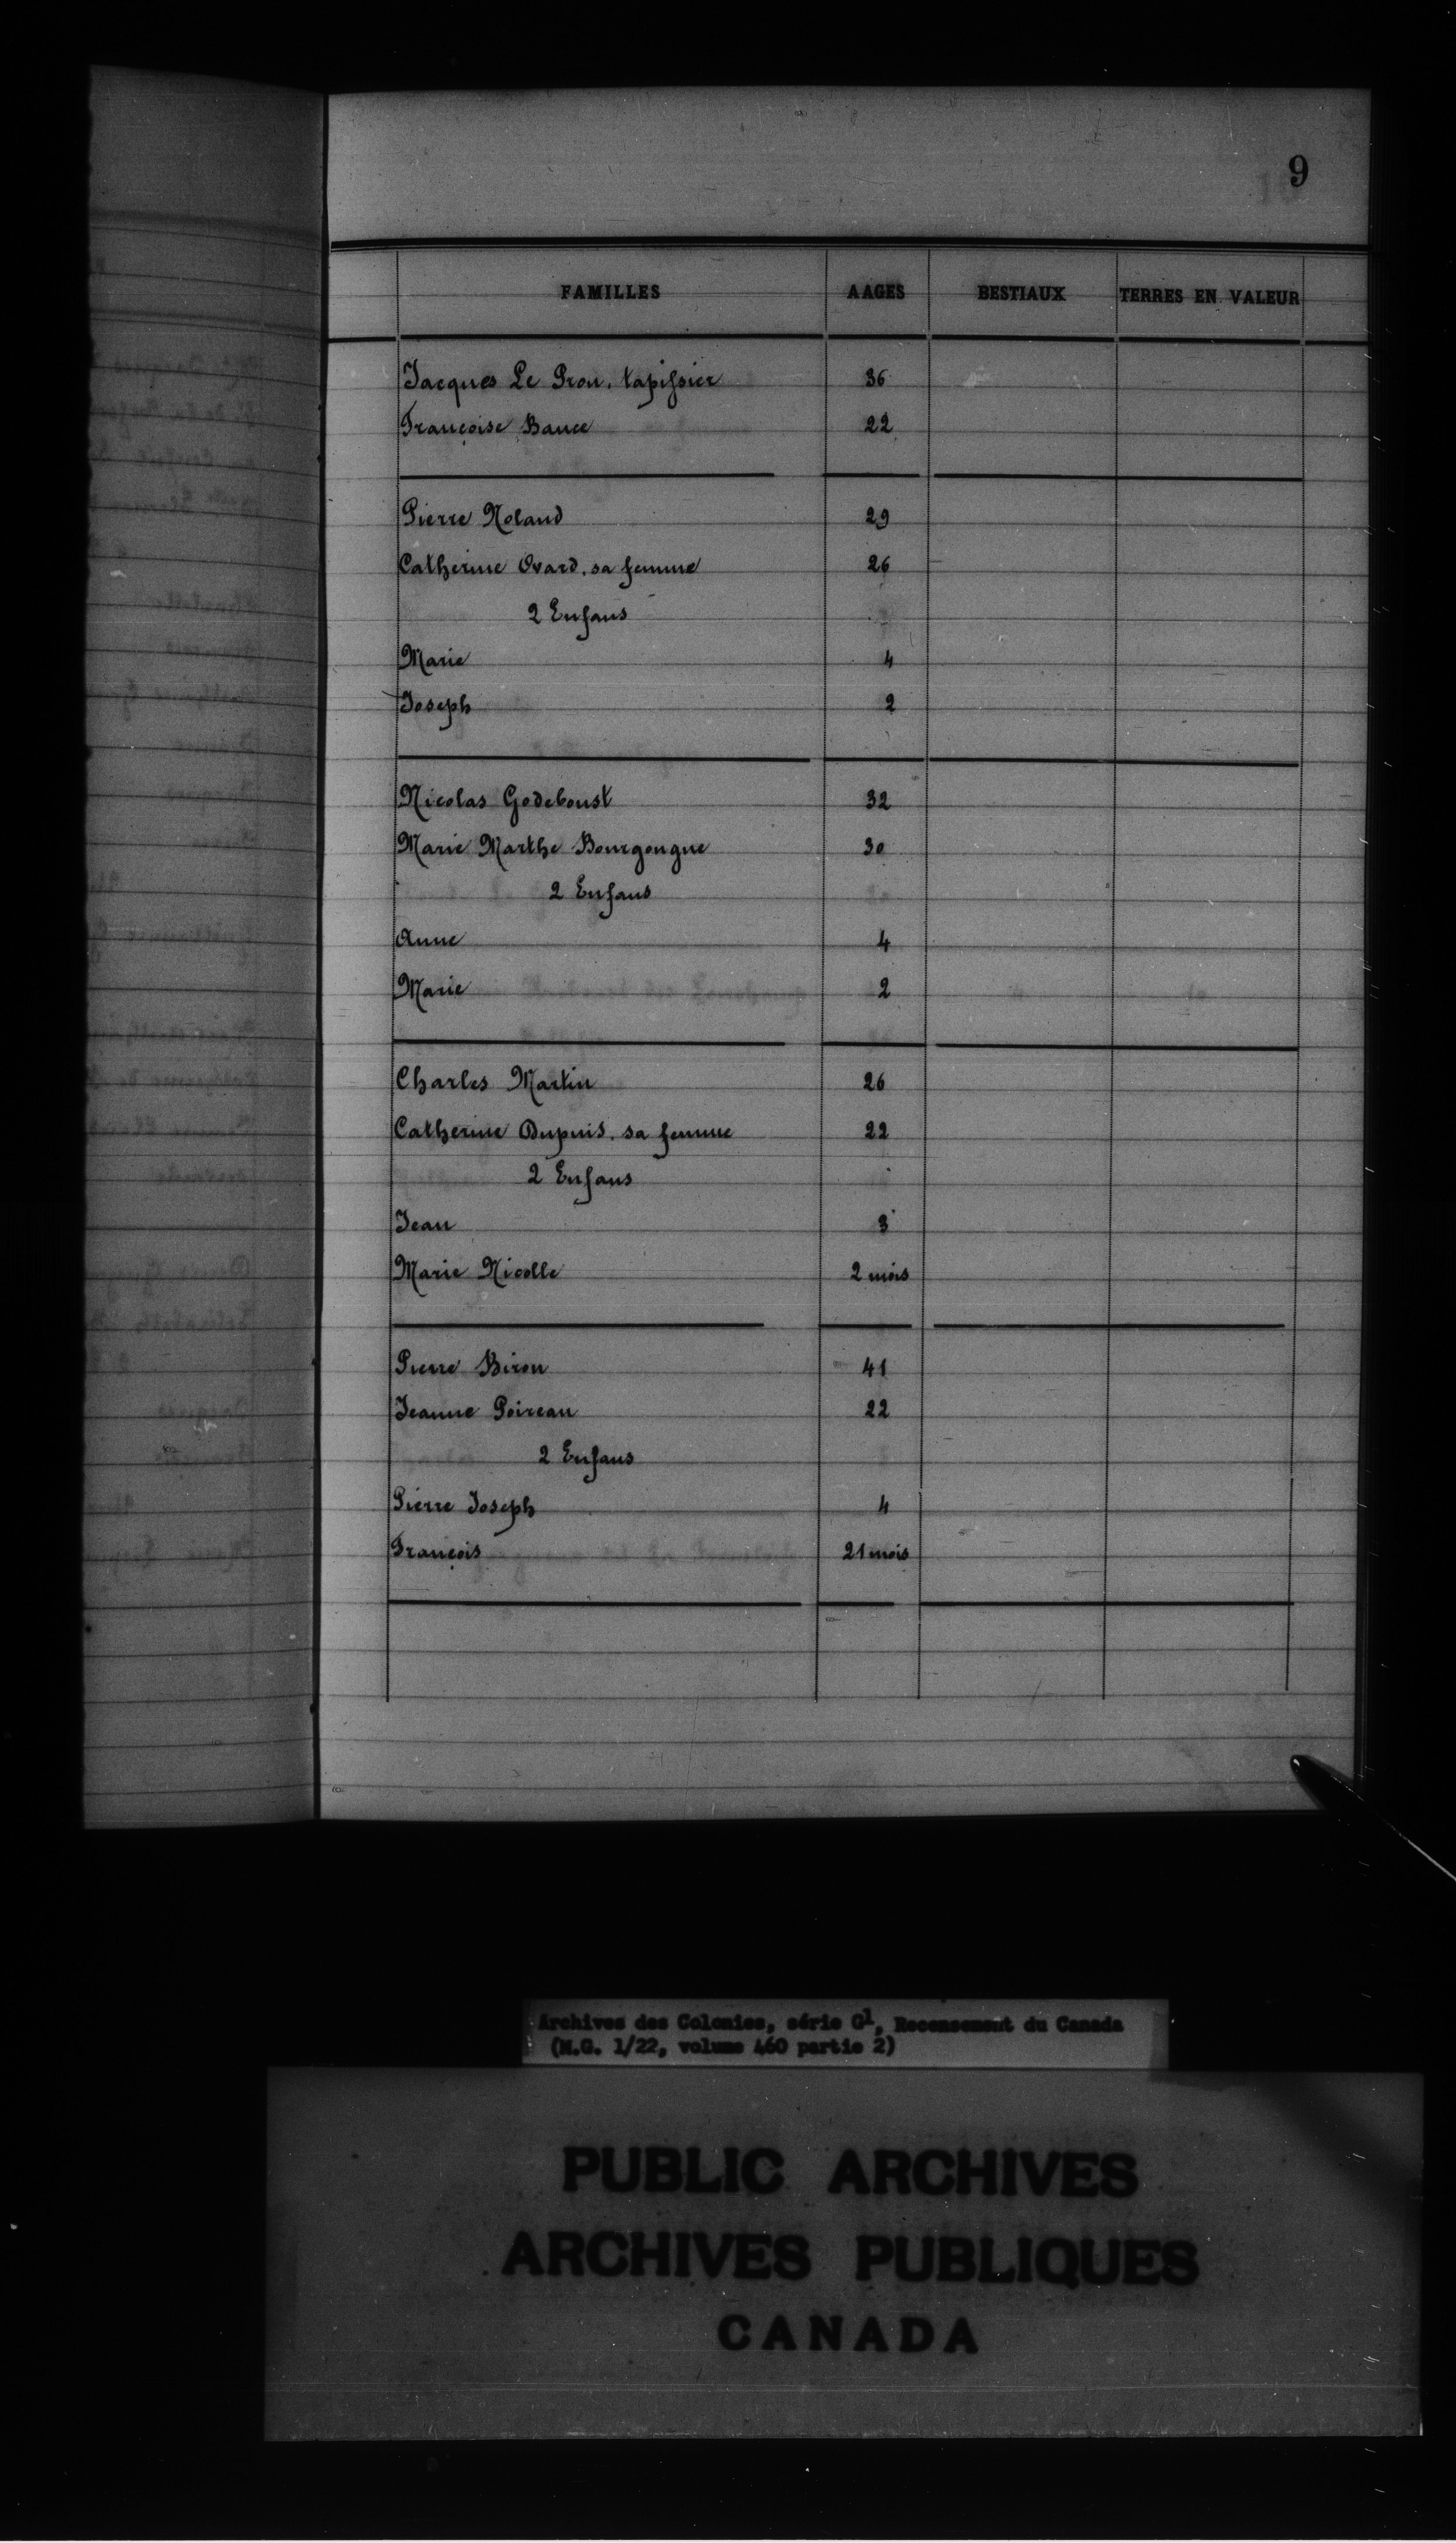 9
FAMILLES AAGES BESTIAUX TERRES EN VALEUR
Jacques Le Prou, tapissier 36
Françoise Bauce 22
Pierre Noland 29
Catherine Ovard, sa femme 26
2 Enfans
Marie 4
Joseph 2
Nicolas Godeboust 32
Marie Marthe Bourgongne 30
2 Enfans
Anne 4
Marie 2
Charles Martin 26
Catherine Dupuis, sa femme 22
2 Enfans
Jean 3
Marie Nicolle 2 mois
Pierre Biron 41
Jeanne Poireau 22
2 Enfans
Pierre Joseph 4
François 21 mois
Archives des Colonies, série G1, Recensement du Canada
(M.G. 1/22, volume 460 partie 2)
PUBLIC ARCHIVES
ARCHIVES PUBLIQUES
CANADA